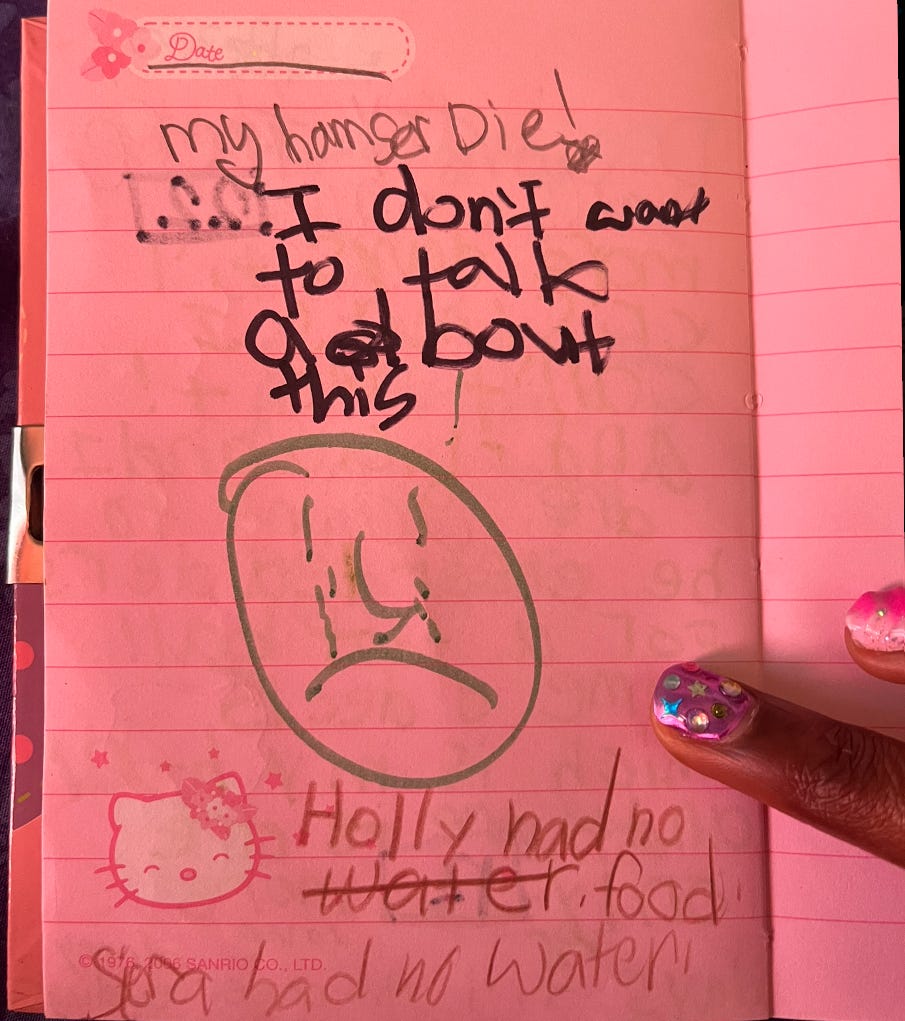 Date
my hamser Die!
I don't want
to talk
a bout
this
Holly had no
water. food.
© 1976, 2006 SANRIO CO., LTD.
had no water!